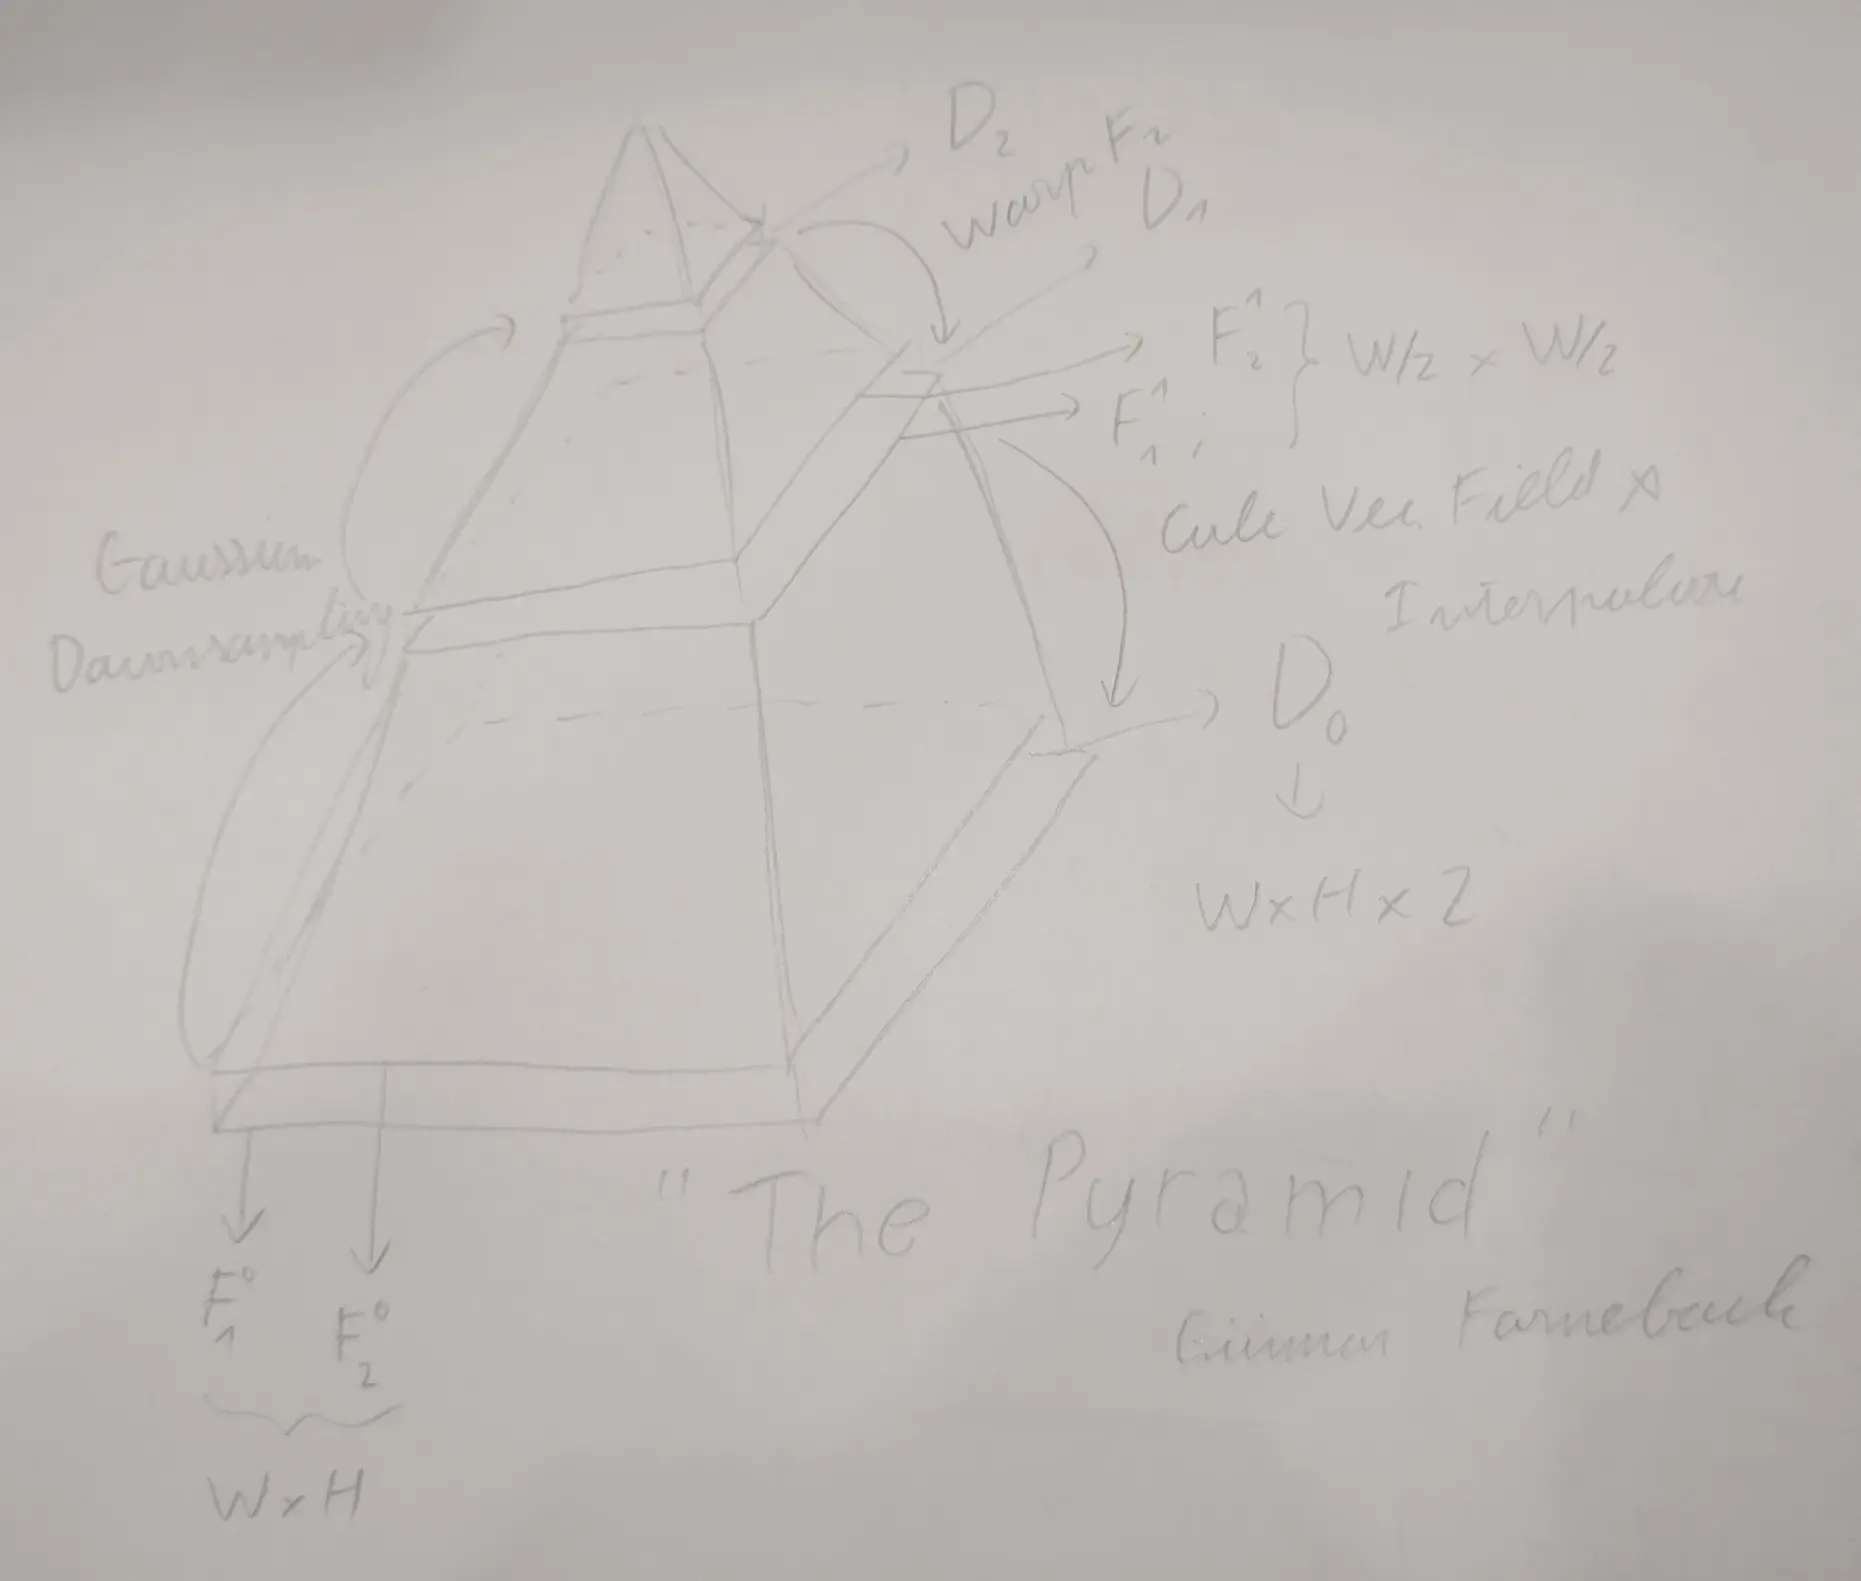 D₂
Warp F₂
D₁
F₂¹ } W/2 × W/2
F₁¹ ;
Calc Vec Field &
Interpolate
Gaussian
Downsampling
D₀
↓
W×H×2
"The Pyramid"
Gunnar Farneback
F₁⁰
F₂⁰
W×H